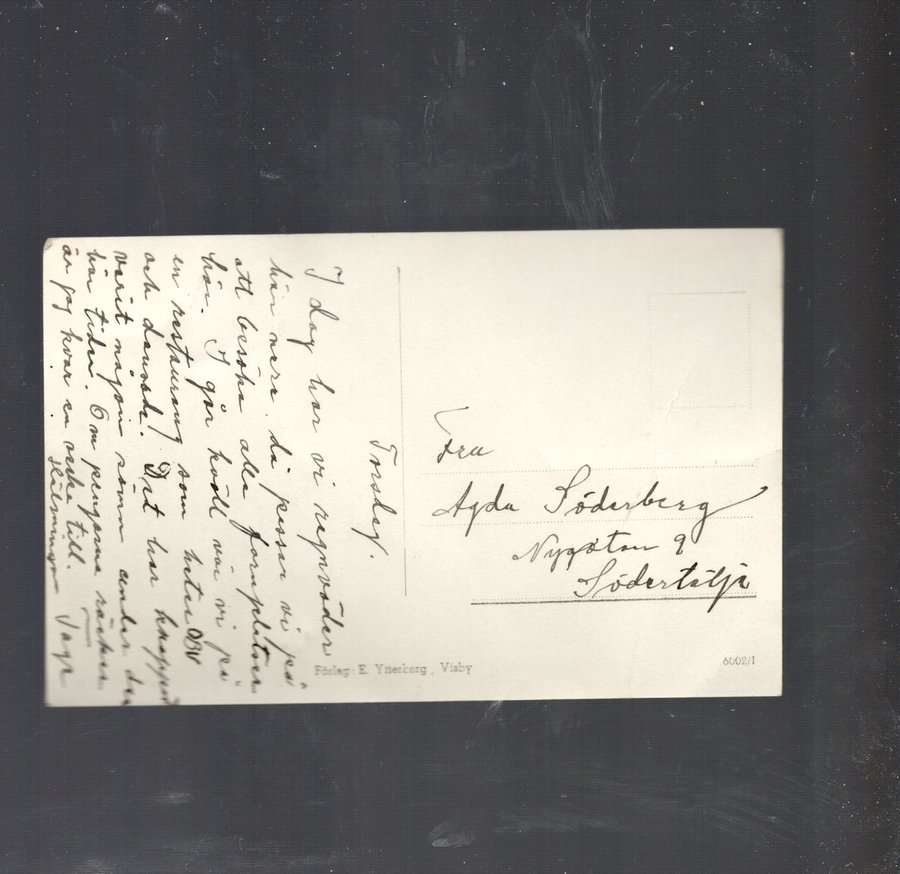 Torsdag.
I dag har vi regnväder
här nere då passar vi på
att besöka alla fornplatser
här. I går kväll var vi på
en restaurang som heter DBV
och dansade. Det har knappt
varit någon sömn under den
här tiden. Om pengarna räcker
är jag kvar en vecka till.
Hälsningar Tage
Fru
Agda Söderberg
Nygatan 9
Södertälje
Förlag: E. Ytterberg, Visby
6002/1